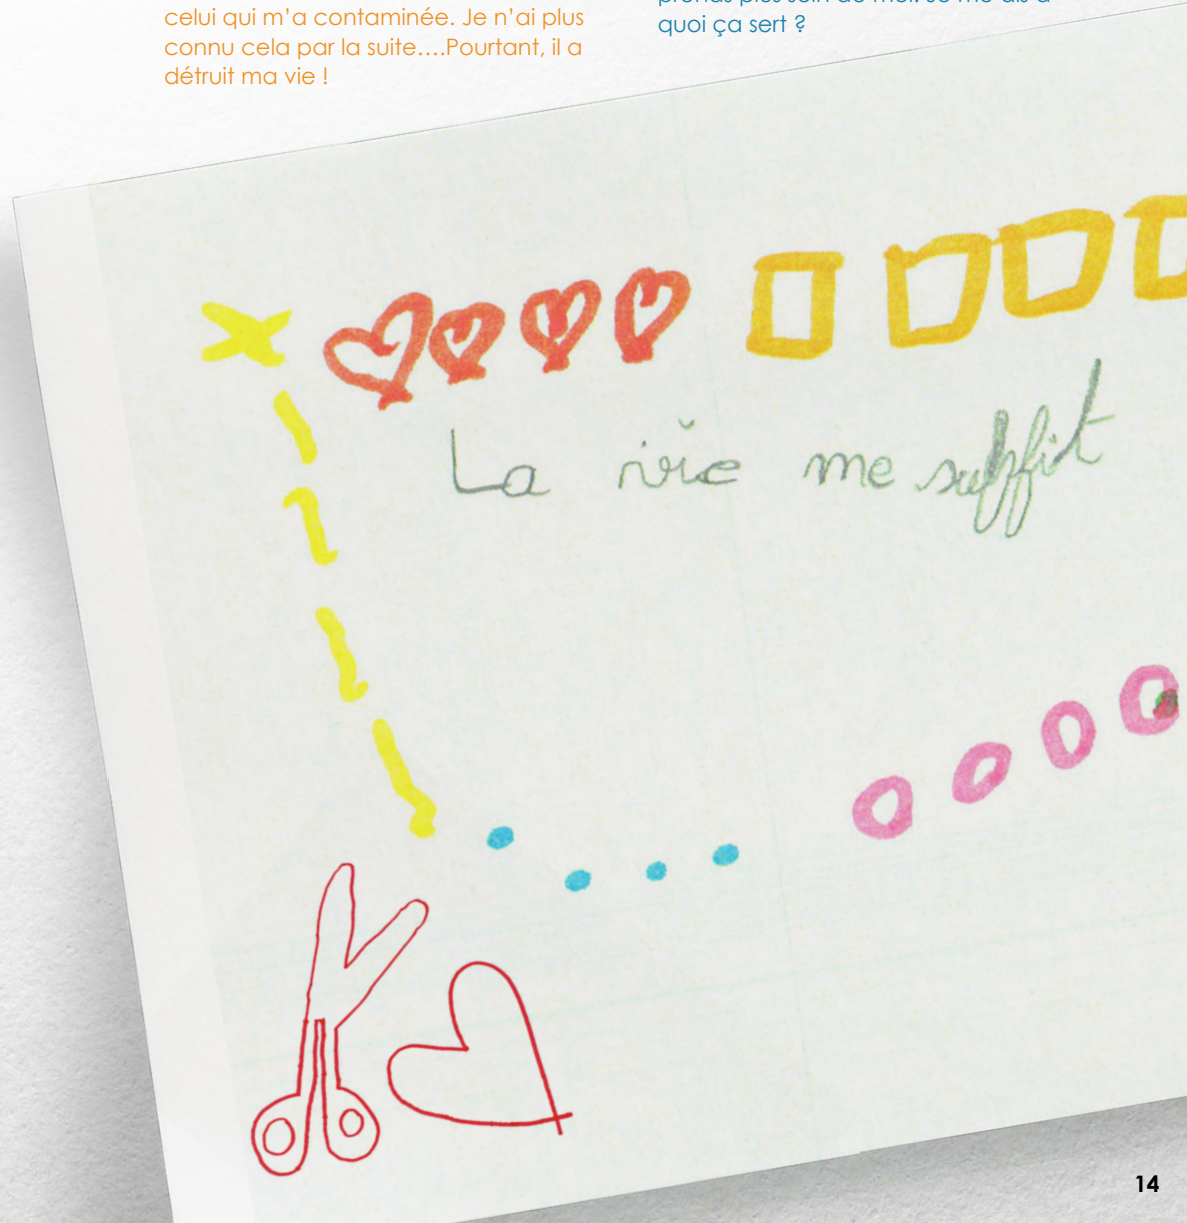 celui qui m’a contaminée. Je n’ai plus
connu cela par la suite….Pourtant, il a
détruit ma vie !
quoi ça sert ?
La vie me suffit
14